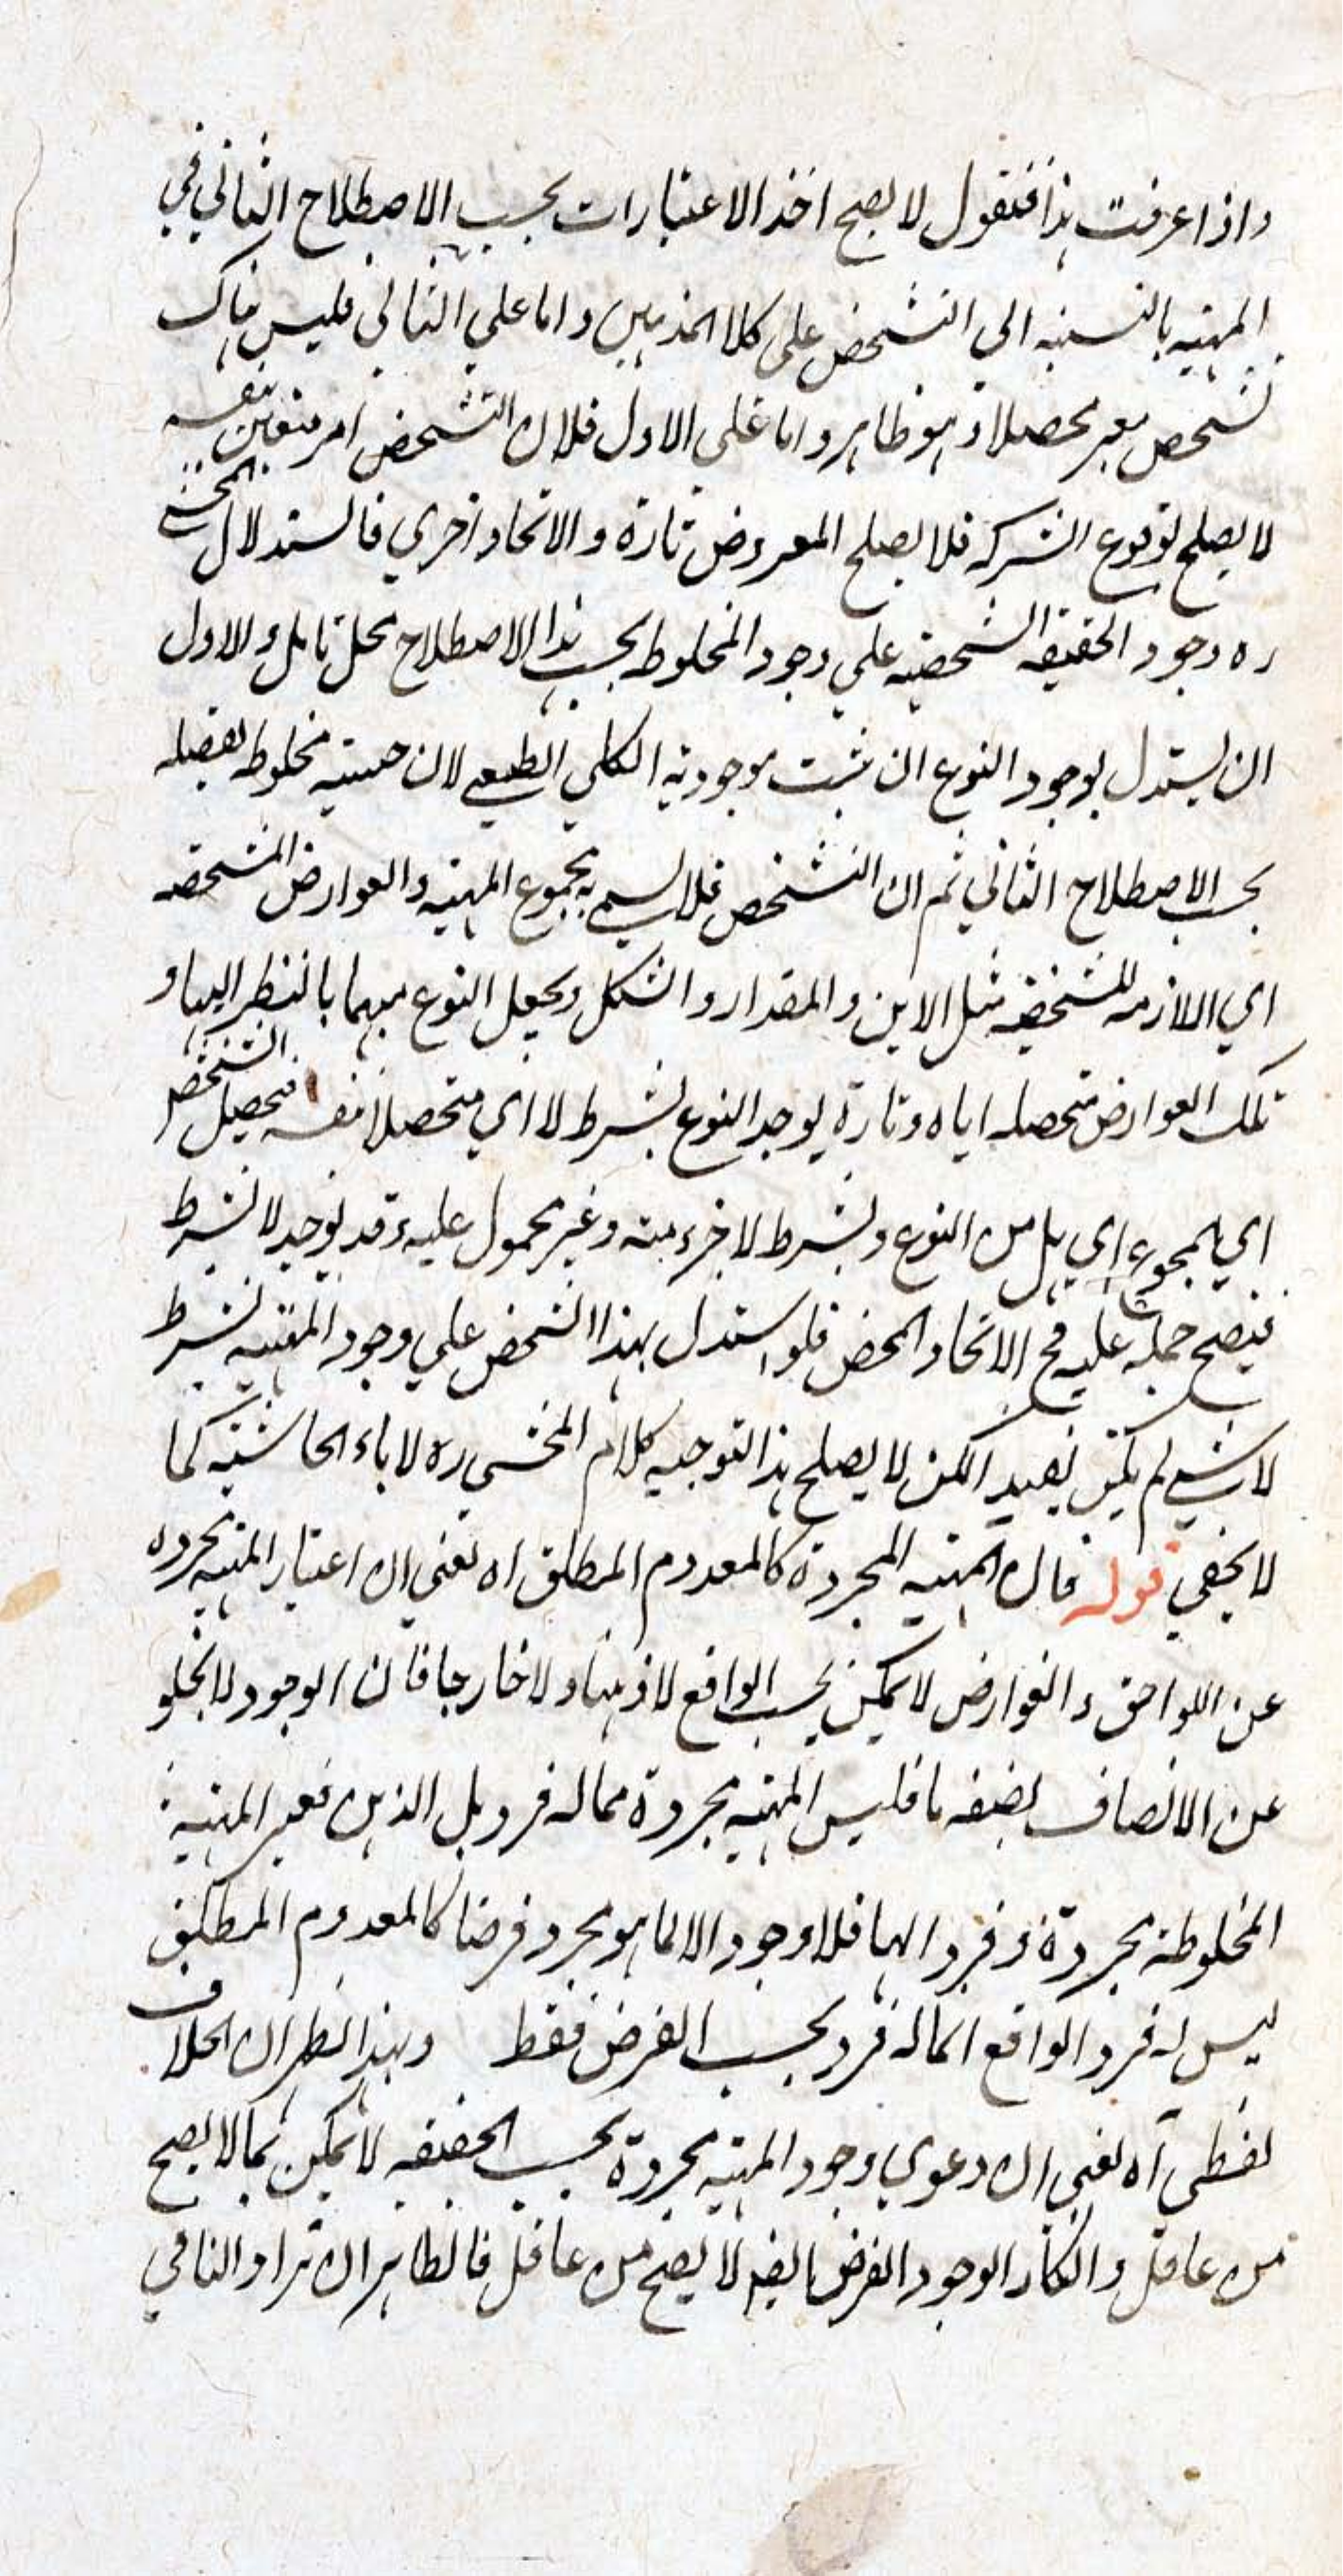 واذا عرفت هذا فنقول لا يصح اخذ الاعتبارات بحسب الاصطلاح الثاني في
المهية بالنسبة الى التشخص على كلا المذهبين واما على الثاني فليس هناك
تشخص معبر محصلا و هو ظاهر واما على الاول فلان التشخص امر متعين بنفسه
لا يصلح لوقوع الشركة فلا يصلح المعروض تارة و الاتحاد اخرى فاستدلال المحشي
ره وجود الحقيقة الشخصية على وجود المخلوط بحسب هذا الاصطلاح محل تامل و الاولى
ان يستدل بوجود النوع ان ثبت موجودية الكلي الطبعي لان جنسيته مخلوطه بفصله
بحسب الاصطلاح الثاني ثم ان الشخص فلا يسمى به مجموع المهية والعوارض المشخصه
اي اللازمه للشخصية مثل الاين و المقدار و الشكل ويجعل النوع مبهما بالنظر اليها و
تلك العوارض متحصله اياه وتارة يوجد النوع بشرط لا اي متحصلا بنفسه فتحصيل الشخص
اي المجموع اي بل من النوع وبشرط لا جزء منه وغير محمول عليه وقد يوجد لا بشرط
فيصح حمله عليه في الاتحاد المحض فلو استدل بهذا الشخص على وجود المهية بشرط
لا شيء لم يكن بعيد الكن لا يصلح هذا التوجيه كلام المحشي ره لاباء الحاشية كما
لا يخفى قوله قال المهية المجردة كالمعدوم المطلق اه يعني ان اعتبار المهية مجرده
عن اللواحق و العوارض لا يمكن بحسب الواقع لا ذهنا و لا خارجا فان الوجود لا يخلو
عن الاتصاف بصفة ما فليس المهية مجردة مما له فرد بل الذهن فعبر المهية
المخلوطة مجردة و فرد الها فلا وجود الا لما هو مجرد فرضا كالمعدوم المطلق
ليس له فرد الواقع انما له فرد بحسب الفرض فقط وبهذا نظر ان الخلاف
لفظي آه يعني ان دعوى وجود المهية مجردة بحسب الحقيقة لا يمكن مما لا يصح
من عاقل و انكار الوجود الفرض ايضا لا يصح من عاقل فالظاهر ان مراد النافي